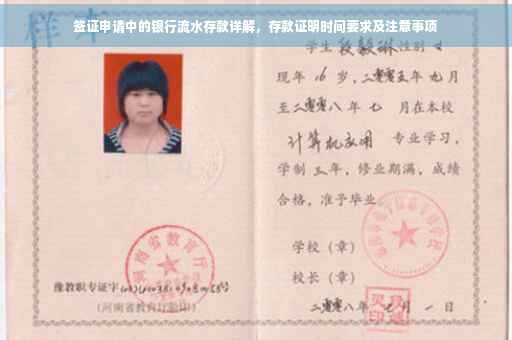 签证申请中的银行流水存款详解，存款证明时间要求及注意事项
样本
学生段毅琳性别女
现年16岁，二零零五年九月
至二零零八年七月在本校
计算机应用专业学习，
学制三年，修业期满，成绩
合格，准予毕业。
学校（章）
校长（章）
二零零八年七月一日
河南省教育厅
豫教职专证字
（河南省教育厅验印）